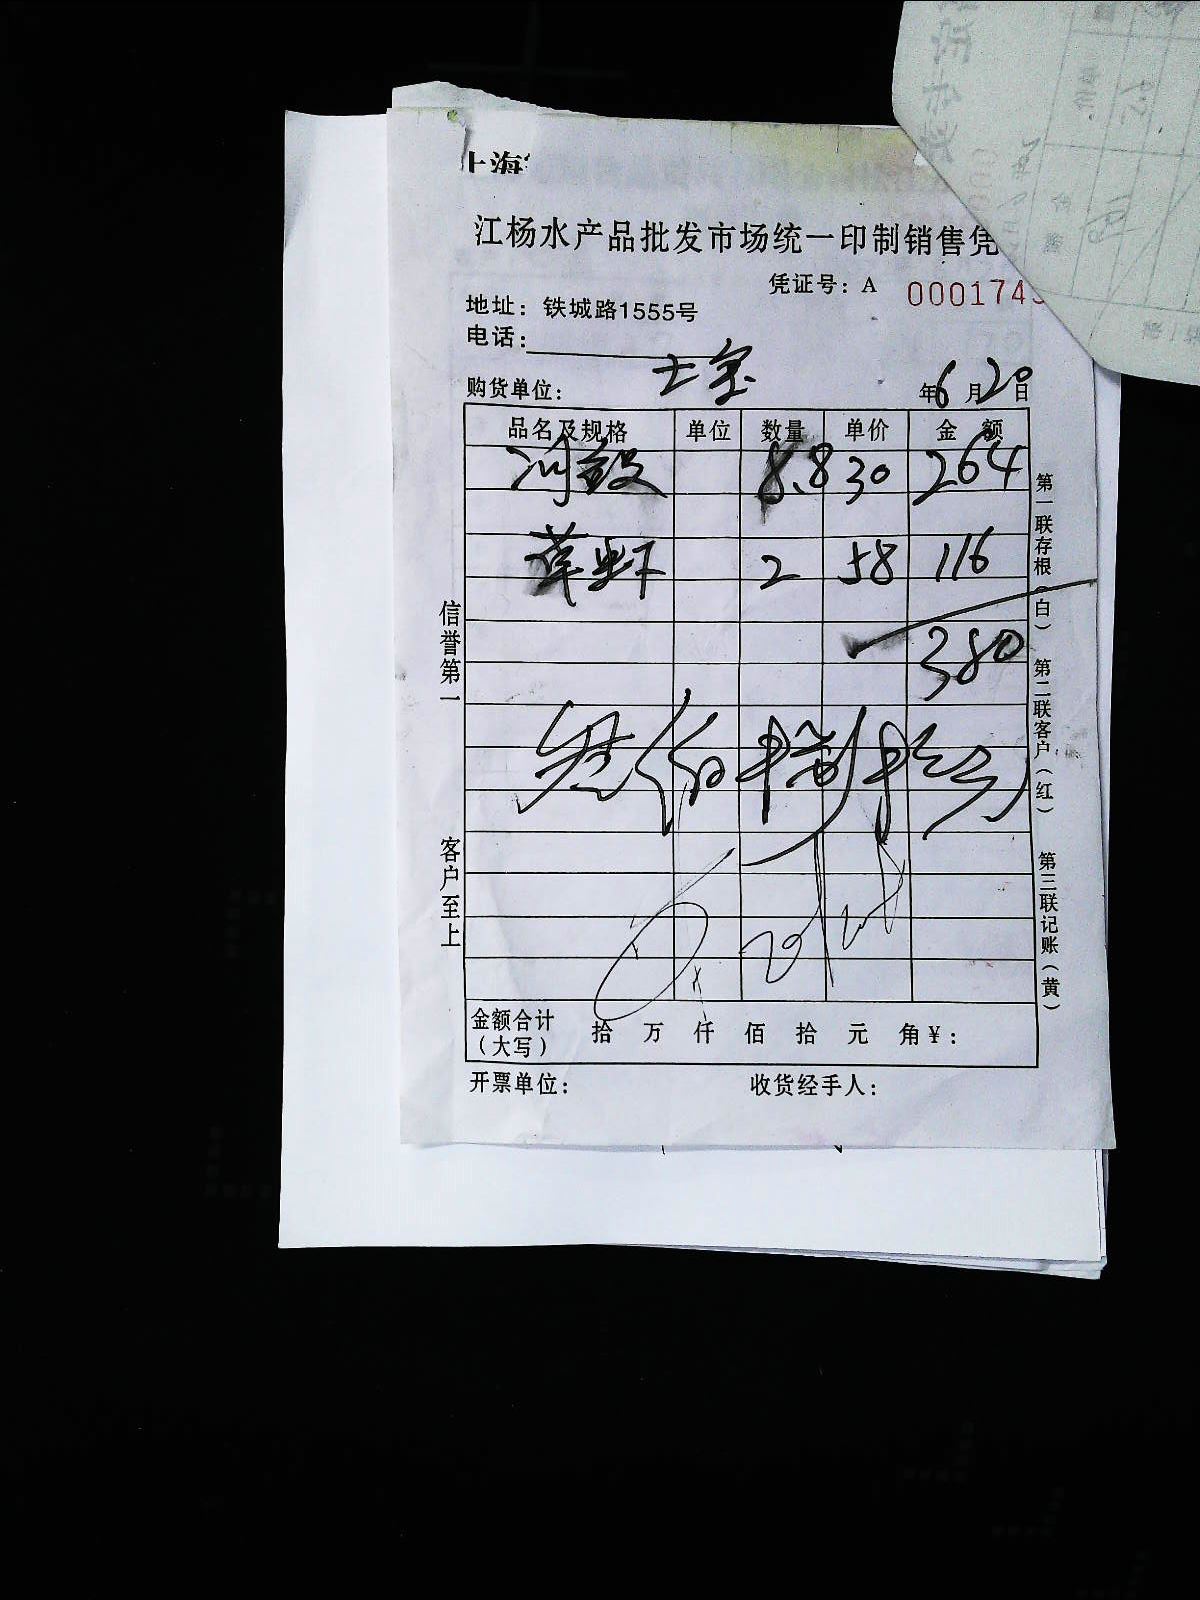 上海
江杨水产品批发市场统一印制销售凭
凭证号：A 000174
地址：铁城路1555号
电话：
购货单位： 士宝 年6月20日
品名及规格 单位 数量 单价 金额
8.8 30 264
草虾 2 58 116
380
金额合计（大写） 拾 万 仟 佰 拾 元 角￥：
开票单位： 收货经手人：
信誉第一
客户至上
第一联存根（白）
第二联客户（红）
第三联记账（黄）